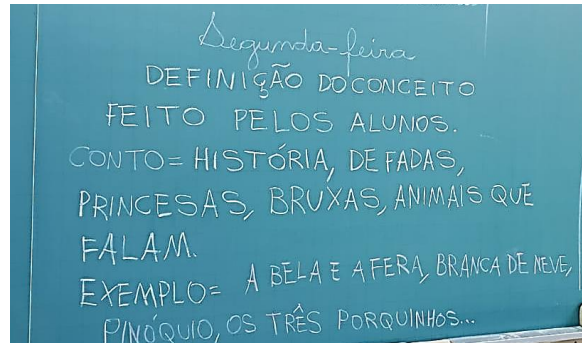 Segunda-feira
DEFINIÇÃO DO CONCEITO
FEITO PELOS ALUNOS.
CONTO= HISTÓRIA, DE FADAS,
PRINCESAS, BRUXAS, ANIMAIS QUE
FALAM.
EXEMPLO= A BELA E A FERA, BRANCA DE NEVE,
PINÓQUIO, OS TRÊS PORQUINHOS...